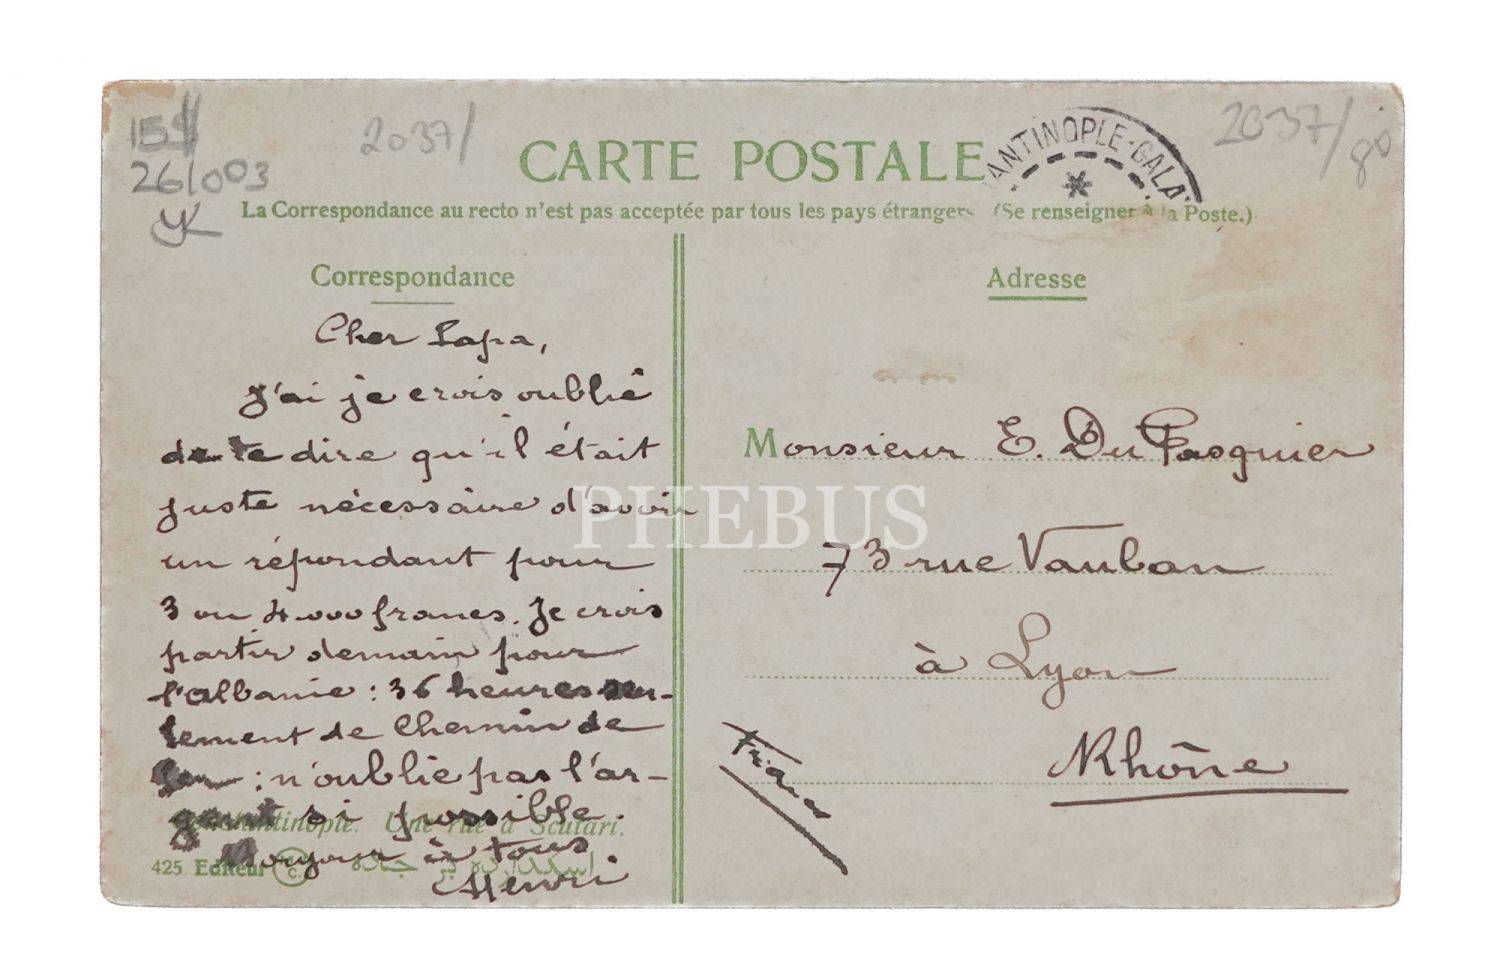 2037/
2037/80
26/003
YK
CARTE POSTALE
ANTINOPLE-GALA
La Correspondance au recto n'est pas acceptée par tous les pays étrangers (Se renseigner à la Poste.)
Correspondance
Cher Papa,
J'ai je crois oublié
de te dire qu'il était
juste nécessaire d'avoir
un répondant pour
3 ou 4.000 francs. Je crois
partir demain pour
l'Albanie : 36 heures seu-
lement de Chemin de
fer : n'oublie pas l'ar-
gent si possible.
Bonjour à tous
Henri
Constantinople. Une rue à Scutari.
425 Editeur
اسكدارده بر جاده
Adresse
Monsieur E. Du Pasquier
73 rue Vauban
à Lyon
Rhône
France
PHEBUS